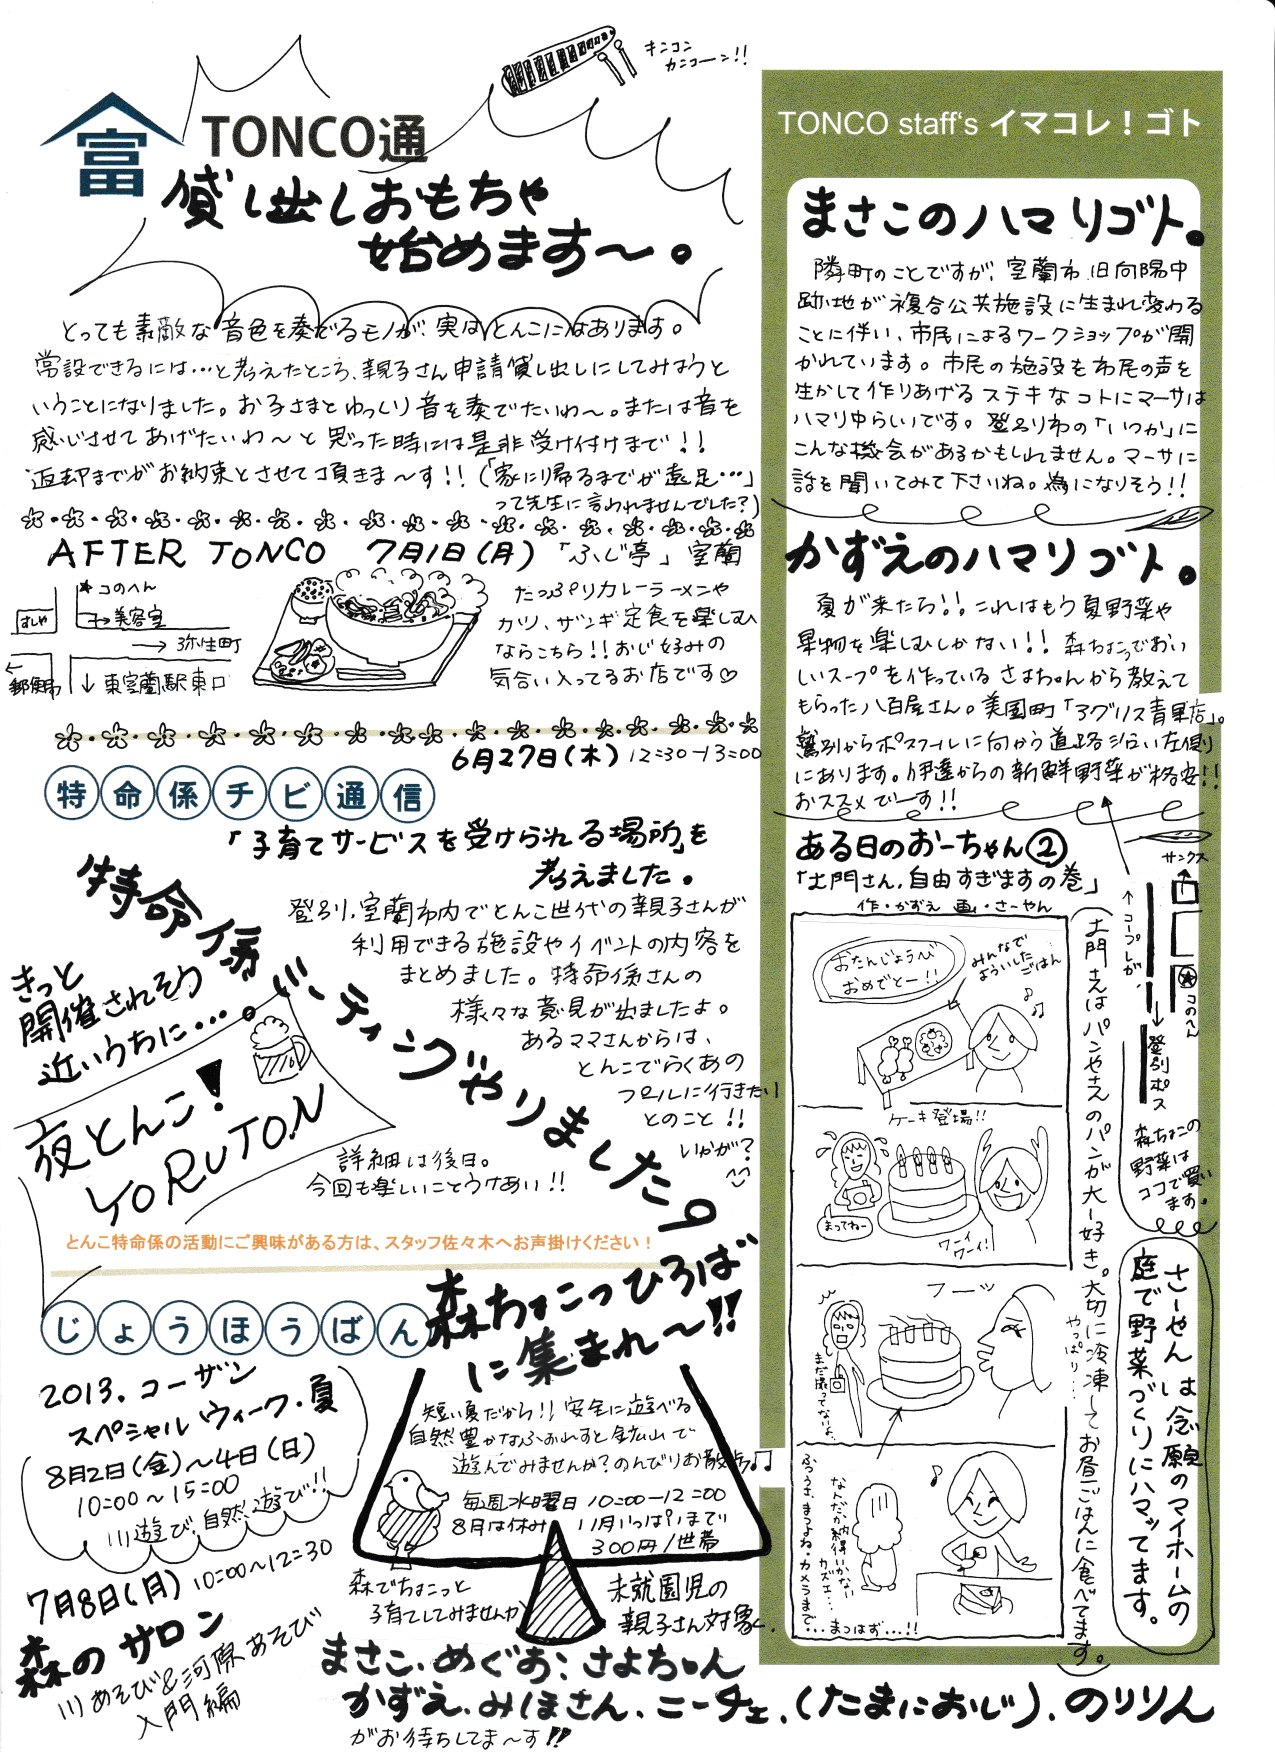 キンコン
カンコーン!!
富
TONCO通
貸し出しおもちゃ
始めます〜。
とっても素敵な音色を奏でるモノが、実はとんこにはあります。
常設できるには…と考えたところ、親子さん申請貸し出しにしてみようと
いうことになりました。お子さまとゆっくり音を奏でたいわ〜。または音を
感じさせてあげたいわ〜と思った時には是非受け付けまで!!
返却までがお約束とさせて頂きま〜す!!(「家に帰るまでが遠足…」
って先生に言われませんでした?)
AFTER TONCO 7月1日(月)「ふじ亭」室蘭
★このへん
すしや
美容室
→弥生町
郵便局
↓東室蘭駅東口
たっぷりカレーラーメンや
カツ、ザンギ定食を楽しむ
ならこちら!!おじ好みの
気合い入ってるお店です♡
6月27日(木) 12:30-13:00
特命係チビ通信
「子育てサービスを受けられる場所」を
考えました。
特命係ミーティングやりました?
登別、室蘭市内でとんこ世代の親子さんが
利用できる施設やイベントの内容を
まとめました。特命係さんの
様々な意見が出ましたよ。
あるママさんからは、
とんこでらくあの
プールに行きたい
とのこと!!
いかが?
^^
きっと
開催されそう
近いうちに…。
夜とんこ!
YORUTON
詳細は後日。
今回も楽しいことうけあい!!
とんこ特命係の活動にご興味がある方は、スタッフ佐々木へお声掛けください！
じょうほうばん
2013.コーザン
スペシャルウィーク・夏
8月2日(金)〜4日(日)
10:00〜15:00
川遊び、自然遊び!!
7月8日(月) 10:00〜12:30
森のサロン
川あそび&河原あそび
入門編
森ちょこっひろば
に集まれ〜!!
短い夏だから!!安全に遊べる
自然豊かなふぉれすと鉱山で
遊んでみませんか?のんびりお散歩♫
毎週水曜日 10:00-12:00
8月は休み 11月いっぱいまで
300円/世帯
森でちょこっと
子育てしてみませんか
未就園児の
親子さん対象。
まさこ、めぐお、さよちゃん
かずえ、みほさん、ニーチェ、(たまにおじ)、のりりん
がお待ちしてま〜す!!
TONCO staff's イマコレ！ゴト
まさこのハマリゴト。
隣町のことですが、室蘭市、旧向陽中
跡地が複合公共施設に生まれ変わる
ことに伴い、市民によるワークショップが開
かれています。市民の施設を市民の声を
生かして作りあげるステキなコトにマーサは
ハマリゆらいです。登別市の「いつか」に
こんな機会があるかもしれません。マーサに
話を聞いてみて下さいね。為になりそう!!
かずえのハマリゴト。
夏が来たら!!これはもう夏野菜や
果物を楽しむしかない!!森ちょこっでおい
しいスープを作っているさよちゃんから教えて
もらった八百屋さん。美園町「アグリス青果店」。
鷲別からポスフールに向かう道路沿い左側
にあります。伊達からの新鮮野菜が格安!!
おススメでーす!!
サンクス
↑コープしが、
★このへん
→登別ポス
森ちょこの
野菜は
ココで買い
ます。
ある日のおーちゃん②
「土門さん、自由すぎますの巻」
作・かずえ 画・さーやん
おたんじょうび
おめでとー!!
みんなで
よういした
ごはん
ケーキ登場!!
まってねー
ワーイ
ワーイ!
フーッ
まだ撮ってないよ
なんだか納得いかない
カズエ…
ふつうさ、まつよね。カメラまで
…まつはず…!!
土門さんはパンやさんのパンが大好き。大切に冷凍してお昼ごはんに食べてます。
やっぱり…
さーやんは念願のマイホームの
庭で野菜づくりにハマッてます。